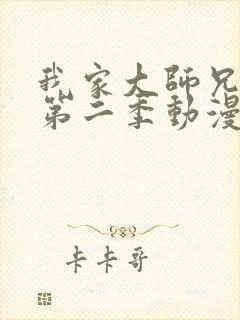 我家大師兄
第二季動漫
卡卡哥